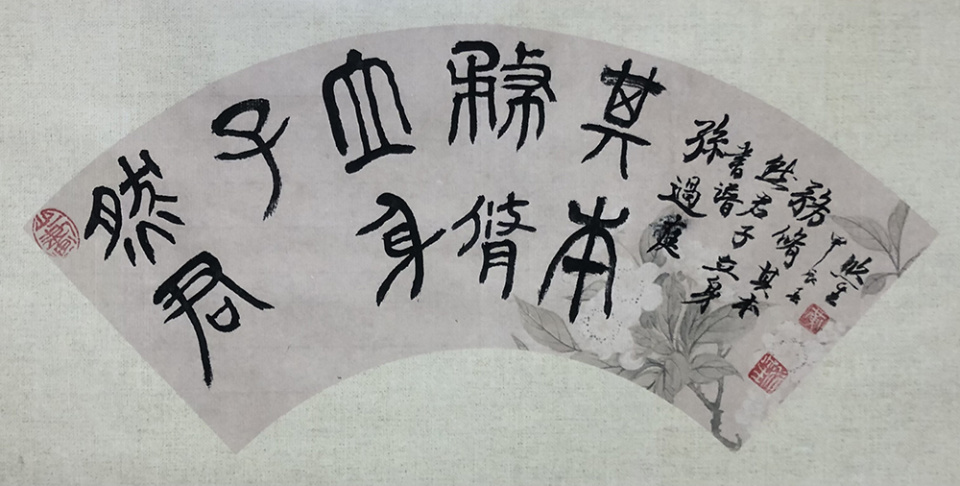 然君
子
立身
務脩
其本
孫過庭
書譜
然君子立身
務脩其本
甲辰